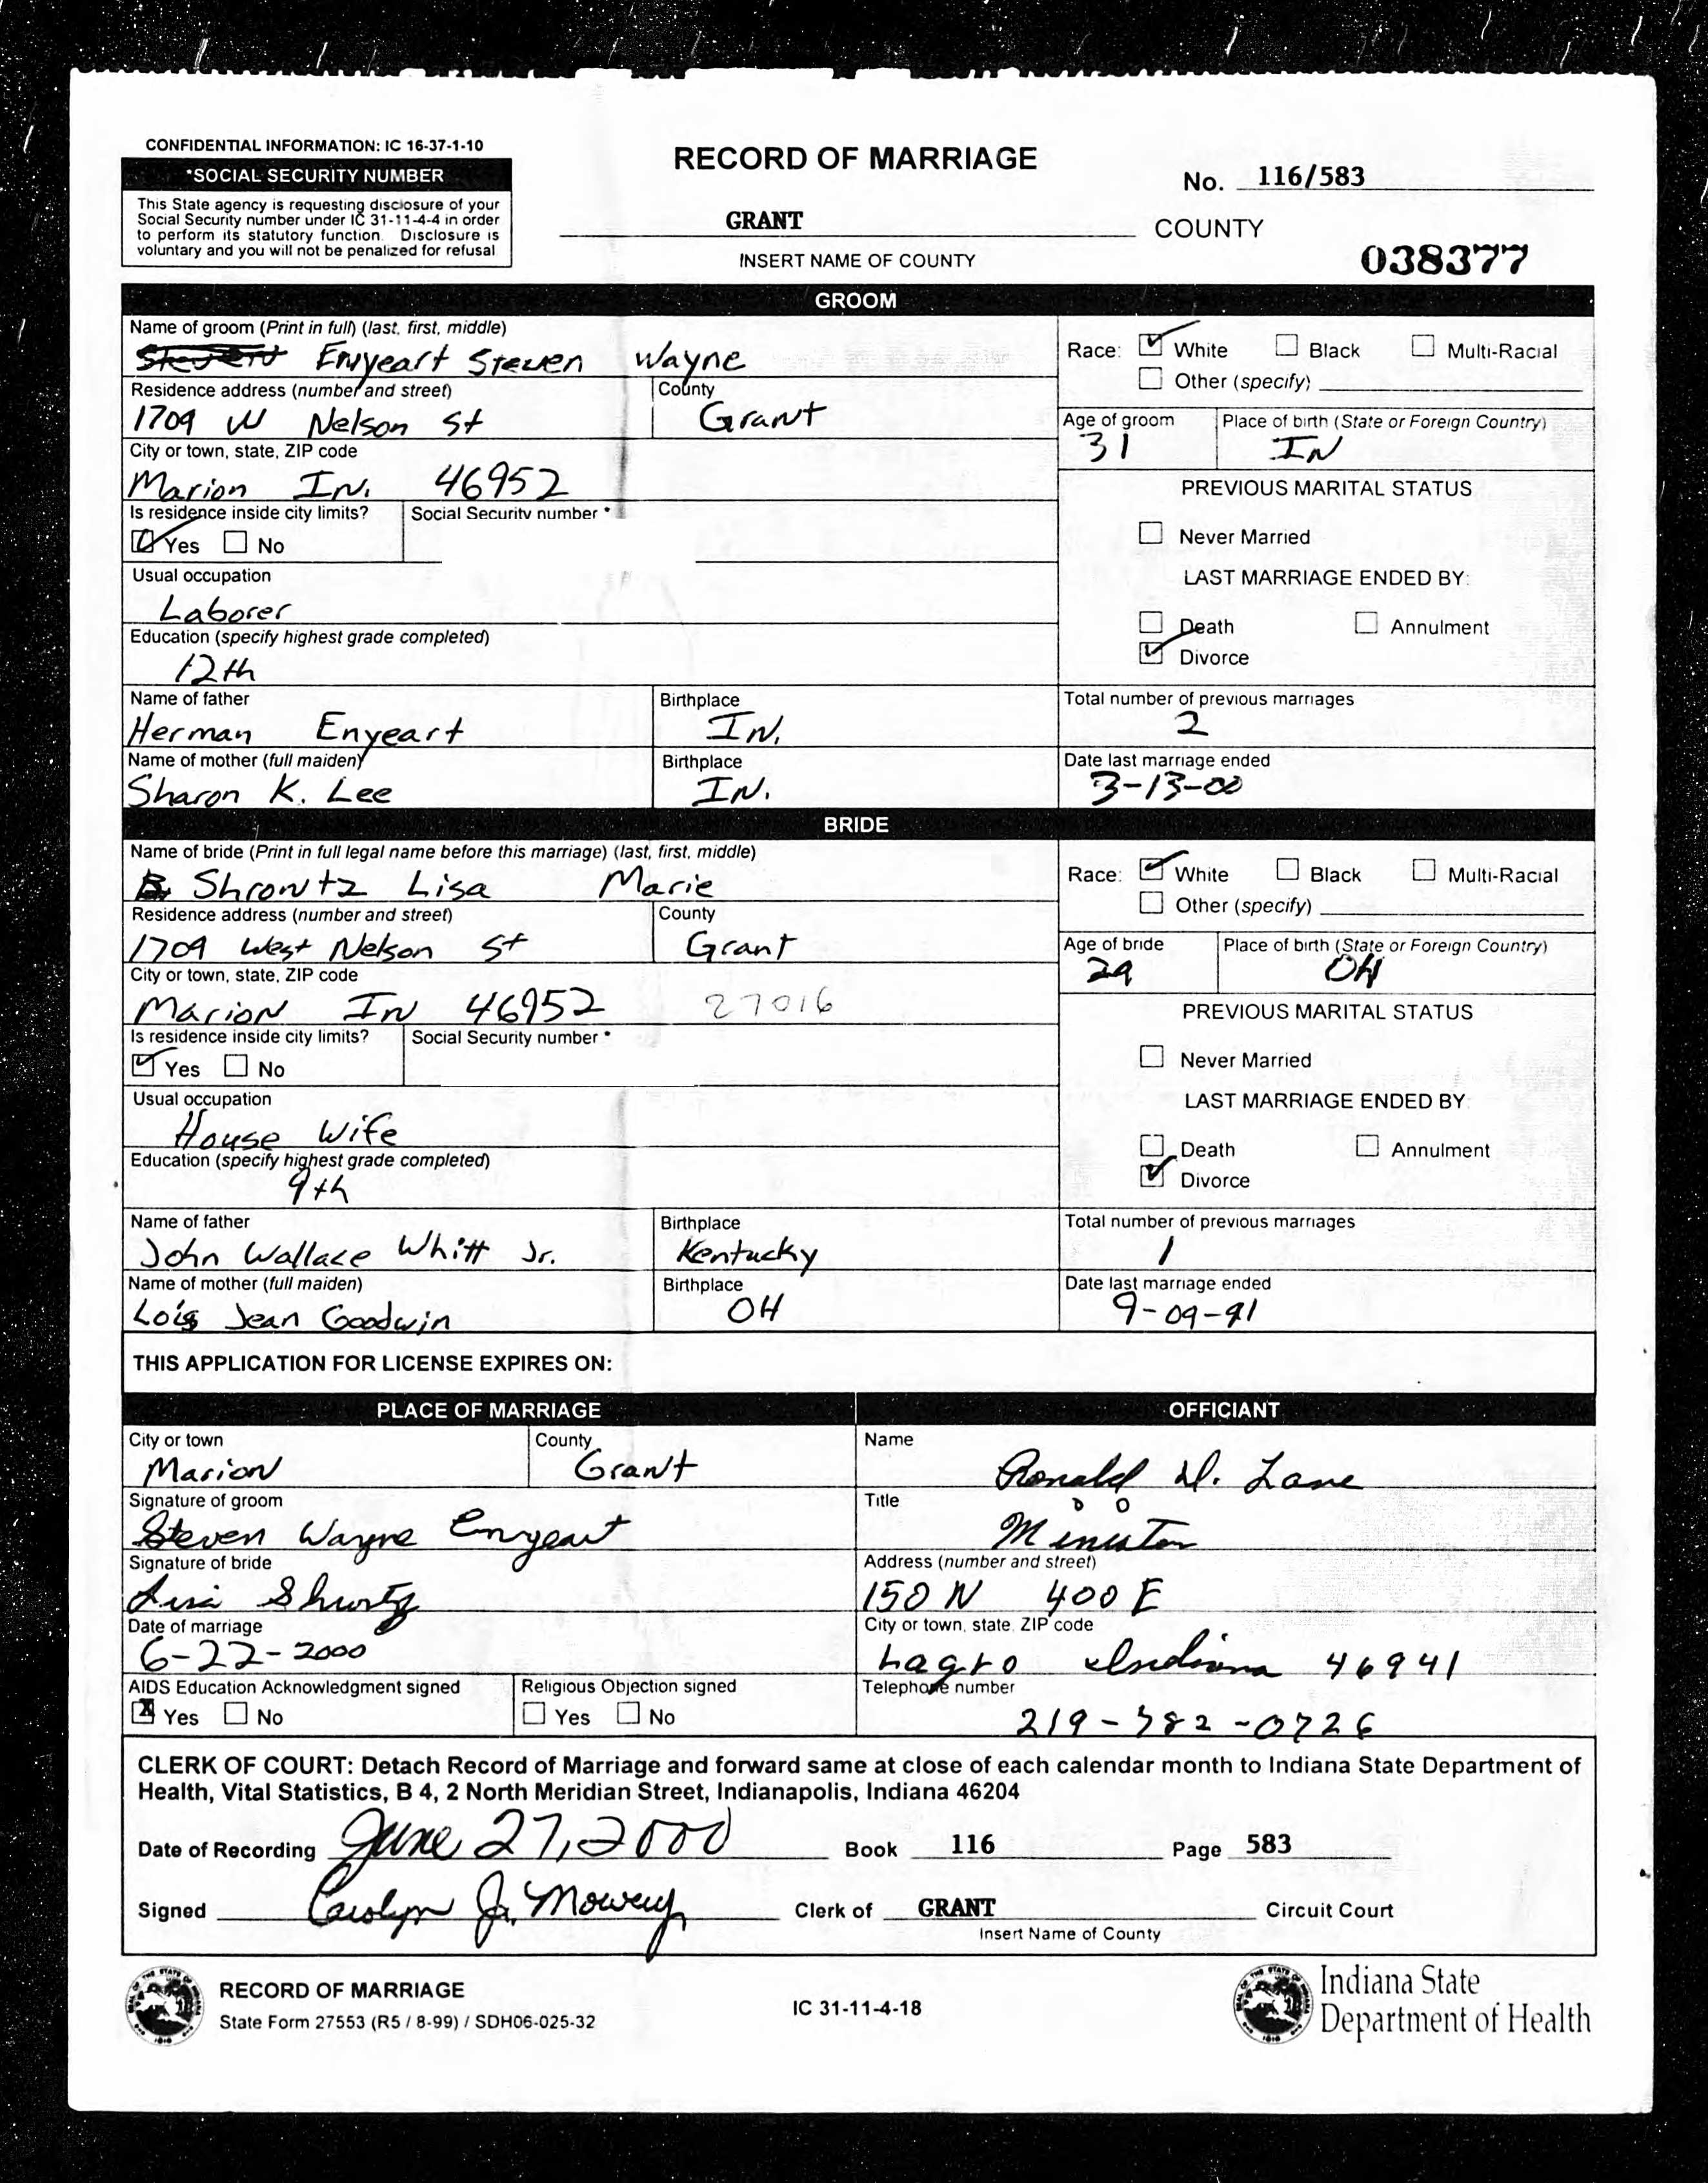 CONFIDENTIAL INFORMATION: IC 16-37-1-10
*SOCIAL SECURITY NUMBER
This State agency is requesting disclosure of your
Social Security number under IC 31-11-4-4 in order
to perform its statutory function. Disclosure is
voluntary and you will not be penalized for refusal
RECORD OF MARRIAGE
No. 116/583
GRANT COUNTY
INSERT NAME OF COUNTY
038377
GROOM
Name of groom (Print in full) (last, first, middle)
Enyeart Steven Wayne
Race: White Black Multi-Racial
Other (specify)
Residence address (number and street) County
1709 W Nelson St Grant
Age of groom Place of birth (State or Foreign Country)
31 IN
City or town, state, ZIP code
Marion IN. 46952
PREVIOUS MARITAL STATUS
Is residence inside city limits? Social Security number *
Yes No
Never Married
Usual occupation
Laborer
LAST MARRIAGE ENDED BY:
Death Annulment
Divorce
Education (specify highest grade completed)
12th
Name of father Birthplace
Herman Enyeart IN.
Total number of previous marriages
2
Name of mother (full maiden) Birthplace
Sharon K. Lee IN.
Date last marriage ended
3-13-00
BRIDE
Name of bride (Print in full legal name before this marriage) (last, first, middle)
Shrontz Lisa Marie
Race: White Black Multi-Racial
Other (specify)
Residence address (number and street) County
1709 West Nelson St Grant
Age of bride Place of birth (State or Foreign Country)
29 OH
City or town, state, ZIP code
Marion IN 46952 27016
PREVIOUS MARITAL STATUS
Is residence inside city limits? Social Security number *
Yes No
Never Married
Usual occupation
House Wife
LAST MARRIAGE ENDED BY:
Death Annulment
Divorce
Education (specify highest grade completed)
9th
Name of father Birthplace
John Wallace Whitt Jr. Kentucky
Total number of previous marriages
1
Name of mother (full maiden) Birthplace
Lois Jean Goodwin OH
Date last marriage ended
9-09-91
THIS APPLICATION FOR LICENSE EXPIRES ON:
PLACE OF MARRIAGE
OFFICIANT
City or town County
Marion Grant
Name
Ronald D. Lane
Signature of groom
Steven Wayne Enyeart
Title
Minister
Signature of bride
Lisa
Address (number and street)
150 N 400 E
Date of marriage
6-22-2000
City or town, state, ZIP code
Lagro Indiana 46941
AIDS Education Acknowledgment signed
X Yes No
Religious Objection signed
Yes No
Telephone number
219-782-0726
CLERK OF COURT: Detach Record of Marriage and forward same at close of each calendar month to Indiana State Department of
Health, Vital Statistics, B 4, 2 North Meridian Street, Indianapolis, Indiana 46204
Date of Recording June 27, 2000 Book 116 Page 583
Signed Carolyn J. Mowery Clerk of GRANT Circuit Court
Insert Name of County
RECORD OF MARRIAGE
State Form 27553 (R5 / 8-99) / SDH06-025-32
IC 31-11-4-18
Indiana State
Department of Health